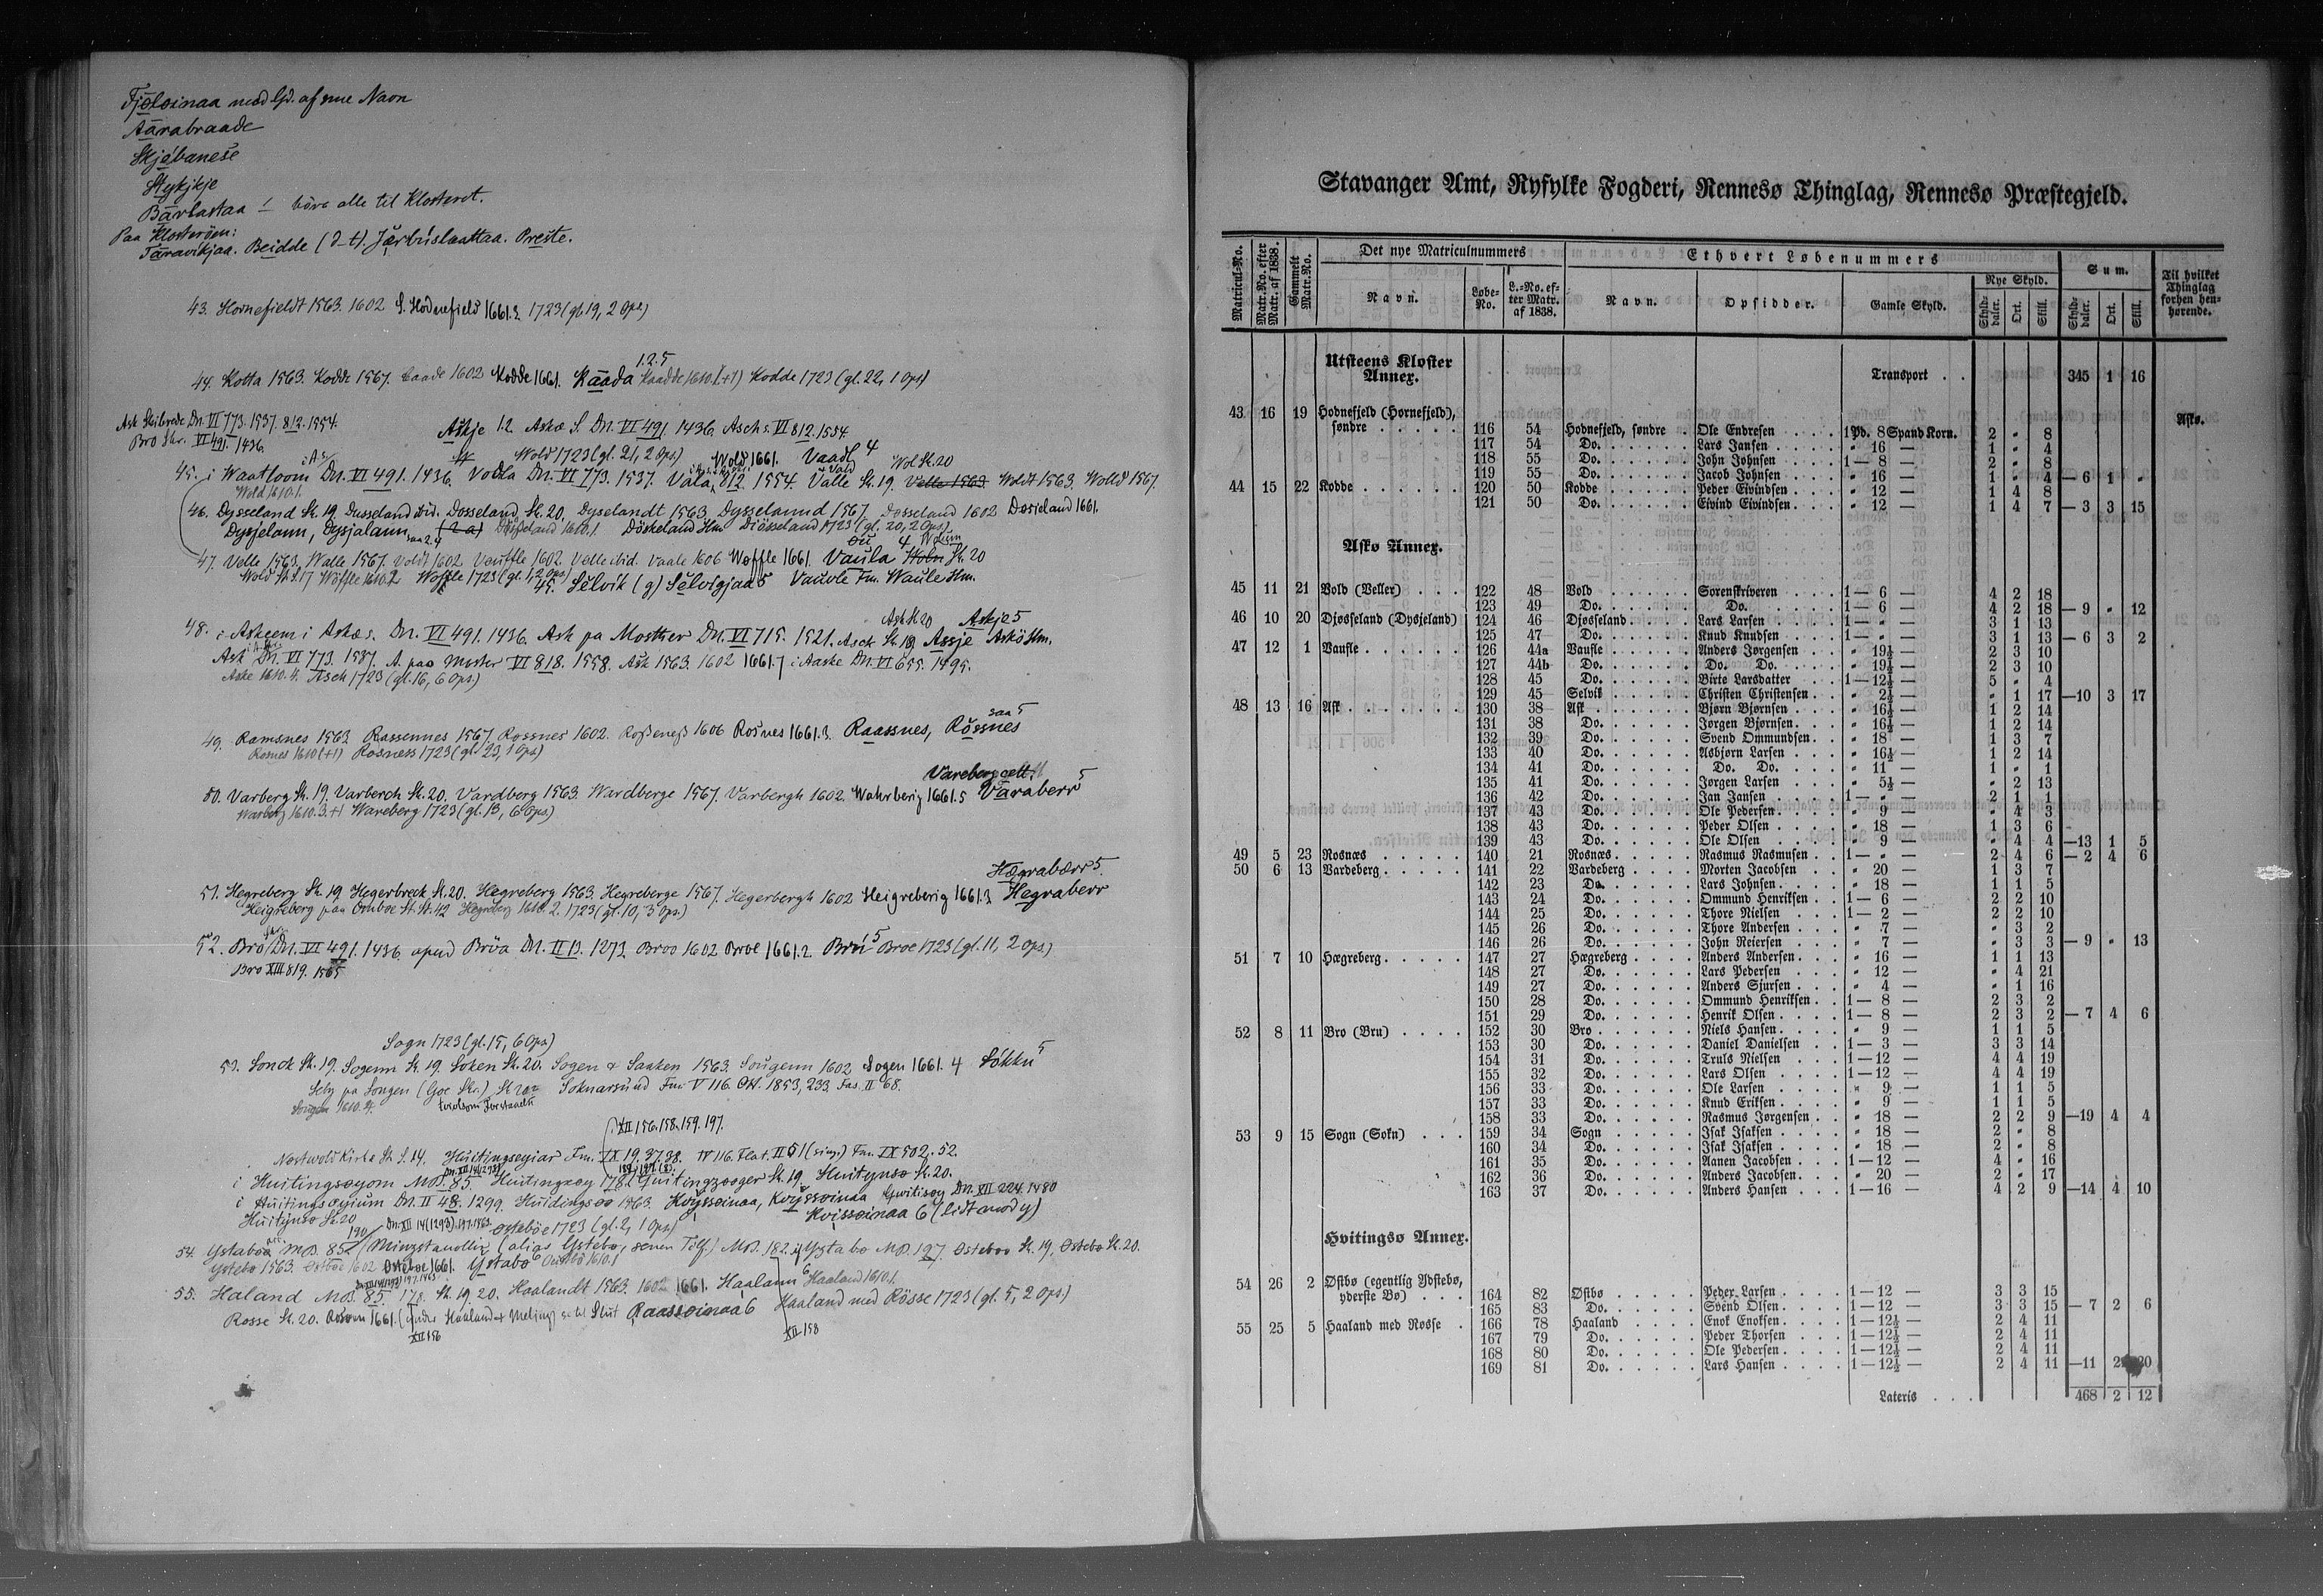 Fjøløinaa med Gd. af sme Navn
Aarabraade
Skjábanese
Stykjkje
Bārlastaa / høre alle til Klosteret.
Paa Klosterøen:
Taravikjaa. Beidde (d-t). Jārbúslaattaa. Preste.
43. Hornefieldt 1563. 1602 S. Hodnefield 1661.3 1723 (gl 19, 2 Ops.)
1.2.5
44. Kotta 1563. Kodde 1567. Caade 1602 Kodde 1661. Kāāda Kaadde 1610.1 (+1) Kodde 1723 (gl. 22, 1 Ops)
Ask Skibrede Dn. VI 773. 1537. 812. 1554.
Bro Skr. VI 491. 1436.
Askje 12. Askø S. Dn. VI 491. 1436. Asch s. VI 812. 1554.
Wold 1723 (gl. 21, 2 Ops) Wold 1661. Vaadl 4 Wol St. 20
45. i Waatloom Dn. VI 491. 1436. Vodla Dn. VI 773. 1537. Vala 812. 1554. Valle St. 19. Velle 1563 Woldt 1563. Wolld 1567.
Wold 1610.1.
46. Dysseland St. 19. Dusseland ibid. Dosseland St. 20. Dyselandt 1563. Dysselannd 1567. Dosseland 1602 Dosseland 1661.
Dysjelann, Dysjalann Dösseland 1610.1. Döskeland Hm. Diösseland 1723 (gl. 20, 2 Ops).
47. Velle 1563. Walle 1567. Voldt 1602. Vauffle 1602. Velle ibid. Vaale 1606 Woffle 1661. Vaula Holm St. 20
Wold St. S. 17 Wöffle 1610.2 Woffle 1723 (gl. 1, 2 Ops) 45. Selvik (g) Selvigjaa 5 Vauvle Fm. Waule Hm.
Ask St 20 Askja 5
48. i Askeem i Askø s. Dn. VI 491. 1436. Ask pa Mosther Dn. VI 715. 1521. Asck St. 19. Assje Askö Hm.
Ask Dn. VI 773. 1537. A. paa Moster VI 818. 1558. Ask 1563. 1602 1661.7 i Aaske Dn. VI 655. 1495.
Aske 1610.4. Asch 1723 (gl. 16, 6 Ops.)
49. Ramsnes 1563. Rassennes 1567. Rossnes 1602. Roßeneß 1606 Rosnes 1661.3. Raassnes, Rössnes
Rosnes 1610 (+1) Rosness 1723 (gl 23, 1 Ops)
Vareberg cett.
50. Varberg St. 19. Varberch St. 20. Vardberg 1563. Wardberge 1567. Varbergh 1602. Wahrberig 1661.5 Vāraberr 5
Warberg 1610.3.+1 Wareberg 1723 (gl. 13, 6 Ops.)
Hægrabærr 5.
51. Hegreberg St. 19. Hegerbreck St. 20. Hegreberg 1563. Hegreberge 1567. Hegerbergh 1602 Heigreberig 1661.3. Hegraberr
Heigreberg paa Omboe St. St. 42 Hegreberg 1610.2. 1723 (gl. 10, 3 Ops.)
52. Bro Dn. VI 491. 1436. apud Brúa Dn. II 13. 1273. Broo 1602 Broe 1661.2. Brú 5 Broe 1723 (gl. 11, 2 Ops)
Bro XIII 819. 1565
Sogn 1723 (gl. 15, 6 Ops)
53. Sonck St. 19. Sogenn St. 19. Soken St. 20. Sogen & Saaken 1563. Sougenn 1602 Sogen 1661. 4 Sókkn 5
Seby pa Songen (Goe Skr.) St. Soknarsund Fm. V 116. OH. 1853, 233 Fas. II 68.
Songen 1610.4.
XII 156. 158. 159. 197.
Nestwold Kirke St. S. 14. Huitingseyiar Fm. IX 19. 37. 38. IV 116. Flat. II 51 (sing.) Fm. IX 502. 52.
i Huitingsøyom Md. 85. Huitingsøy 178. Huitingzøøger St. 19. Huitynsø St. 20.
i Huitingsøyium Dn. II 48. 1299. Huidingsøø 1563. Kvyssøinaa, Kvyssoinaa Hwitisøy Dn. XII 224. 1480
Huitynsø St. 20 Kvissøinaa 6 (lidt mod y)
Ostebøe 1723 (gl. 2, 1 Ops)
54. Ystabø MB. 85 (Mingstandlir (alias Ystebø, senen Tilf.) MB. 182. Ysta bø MB. 197. Østebøø St. 19. Østebø St. 20.
Ystebø 1563. Østbøe 1602 Ostebøe 1661. Ystabø 6 Oustbö 1610.1
55. Haland MB. 85. 178. St. 19, 20. Haalandt 1563. 1602 1661. Haalann 6 Haaland 1610.1.
Rosse St. 20. Rossøen 1661. Raassøinaa 6 Haaland med Rösse 1723 (gl. 5, 2 Ops)
XII 156 XII 158
Stavanger Amt, Ryfylke Fogderi, Rennesø Thinglag, Rennesø Præstegjeld.
Matricul-No. Matr.No. efter Matr. af 1838. Gammelt Matr.No. Det nye Matriculnummers Ethvert Løbenummers Sum. Til hvilket Thinglag forhen henhørende.
Navn. Løbe-No. L.-No. efter Matr. af 1838. Navn. Opsidder. Gamle Skyld. Nye Skyld. Skylddaler. Ort. Skill. Skylddaler. Ort. Skill.
Utsteens Kloster Annex.
Transport . . 345 1 16
43 16 19 Hodnefjeld (Hornefjeld), Askø.
søndre . . . . . 116 54 Hodnefjeld, søndre . Ole Endresen . . . . 1 Pd. 8 Spand Korn. 2 " 8
117 54 Do. . . . . . . Lars Jansen . . . . " 16 — 1 " 4
118 55 Do. . . . . . . John Johnsen . . . . 1 — 8 — 2 " 8
119 55 Do. . . . . . . Jacob Johnsen . . . . " 16 — 1 " 4 — 6 1 "
44 15 22 Kodde . . . . . . 120 50 Kodde . . . . . . Peder Eivindsen . . . " 12 — 1 4 8
121 50 Do. . . . . . . Eivind Eivindsen . . . " 12 — 1 4 7 — 3 3 15
Askø Annex.
45 11 21 Vold (Veller) . . . 122 48 Vold . . . . . . Sorenskriveren . . . 1 — 6 — 4 2 18
123 49 Do. . . . . . . Do. . . . . 1 — 6 — 4 2 18 — 9 " 12
46 10 20 Djøsseland (Dysjeland) 124 46 Djøsseland . . . . Lars Larsen . . . . 1 — " — 3 1 13
125 47 Do. . . . . . . Knud Knudsen . . . 1 — " — 3 1 13 — 6 3 2
47 12 1 Vaufle . . . . . . 126 44a Vaufle . . . . . . Anders Jørgensen . . . " 19½ — 2 3 10
127 44b Do. . . . . . . Do. Do. . . . . " 19½ — 2 3 10
128 45 Do. . . . . . . Birte Larsdatter . . 1 — 12½ — 5 " 4
129 45 Selvik . . . . . Christen Christensen . . " 2½ — " 1 17 —10 3 17
48 13 16 Ask . . . . . . . 130 38 Ask . . . . . . Bjørn Bjørnsen . . . " 16½ — 1 2 14
131 38 Do. . . . . . . Jørgen Bjørnsen . . . " 16½ — 1 2 14
132 39 Do. . . . . . . Svend Ommundsen . . " 18 — 1 3 7
133 40 Do. . . . . . . Asbjørn Larsen . . . " 16½ — 1 2 14
134 41 Do. . . . . . . Do. Do. . . . . " 11 — 1 " 1
135 41 Do. . . . . . . Jørgen Larsen . . . . " 5½ — " 2 13
136 42 Do. . . . . . . Jan Jansen . . . . 1 — " — 2 1 1
137 43 Do. . . . . . . Ole Pedersen . . . . " 9 — " 4 3
138 43 Do. . . . . . . Peder Olsen . . . . " 18 — 1 3 6
139 43 Do. . . . . . . Ole Olsen . . . . . " 9 — " 4 4 —13 1 5
49 5 23 Rosnæs . . . . . 140 21 Rosnæs . . . . . Rasmus Rasmusen . . 1 — " — 2 4 6 — 2 4 6
50 6 13 Vardeberg . . . . . 141 22 Vardeberg . . . . Morten Jacobsen . . . " 20 — 1 3 7
142 23 Do. . . . . . . Lars Johnsen . . . . " 18 — 1 1 5
143 24 Do. . . . . . . Ommund Henriksen . . 1 — 6 — 2 2 10
144 25 Do. . . . . . . Thore Nielsen . . . 1 — 2 — 2 2 10
145 26 Do. . . . . . . Thore Andersen . . . " 7 — " 3 2
146 26 Do. . . . . . . John Reiersen . . . " 7 — " 3 3 — 9 " 13
51 7 10 Hægreberg . . . . . 147 27 Hægreberg . . . . Anders Andersen . . . " 16 — 1 1 13
148 27 Do. . . . . . . Lars Pedersen . . . " 12 — " 4 21
149 27 Do. . . . . . . Anders Sjursen . . . " 4 — " 1 16
150 28 Do. . . . . . . Ommund Henriksen . . 1 — 8 — 2 3 2
151 29 Do. . . . . . . Henrik Olsen . . . . 1 — 8 — 2 3 2 — 7 4 6
52 8 11 Bro (Bru) . . . . 152 30 Bro . . . . . . Niels Hansen . . . . " 9 — 1 1 5
153 30 Do. . . . . . . Daniel Danielsen . . 1 — 3 — 3 3 14
154 31 Do. . . . . . . Truls Nielsen . . . 1 — 12 — 4 4 19
155 32 Do. . . . . . . Lars Olsen . . . . 1 — 12 — 4 4 19
156 33 Do. . . . . . . Ole Larsen . . . . " 9 — 1 1 5
157 33 Do. . . . . . . Knud Eriksen . . . . " 9 — 1 1 5
158 33 Do. . . . . . . Rasmus Jørgensen . . " 18 — 2 2 9 —19 4 4
53 9 15 Sogn (Sokn) . . . 159 34 Sogn . . . . . . Isak Isaksen . . . . " 18 — 2 " 8
160 34 Do. . . . . . . Isak Isaksen . . . . " 18 — 2 " 8
161 35 Do. . . . . . . Aanen Jacobsen . . . 1 — 12 — 4 " 16
162 36 Do. . . . . . . Anders Jacobsen . . . " 20 — 2 " 17
163 37 Do. . . . . . . Anders Hansen . . . 1 — 16 — 4 2 9 —14 4 10
Hvitingsø Annex.
54 26 2 Østbø (egentlig Ydstebø,
yderste Bø) . . . 164 82 Østbø . . . . . Peder Larsen . . . . 1 — 12 — 3 3 15
165 83 Do. . . . . . . Svend Olsen . . . . 1 — 12 — 3 3 15 — 7 2 6
55 25 5 Haaland med Rosse . 166 78 Haaland . . . . Enok Enoksen . . . . 1 — 12½ — 2 4 11
167 79 Do. . . . . . . Peder Thorsen . . . 1 — 12½ — 2 4 11
168 80 Do. . . . . . . Ole Pedersen . . . . 1 — 12½ — 2 4 11
169 81 Do. . . . . . . Lars Hansen . . . . 1 — 12½ — 2 4 11 —11 2 20
Lateris . . . 468 2 12